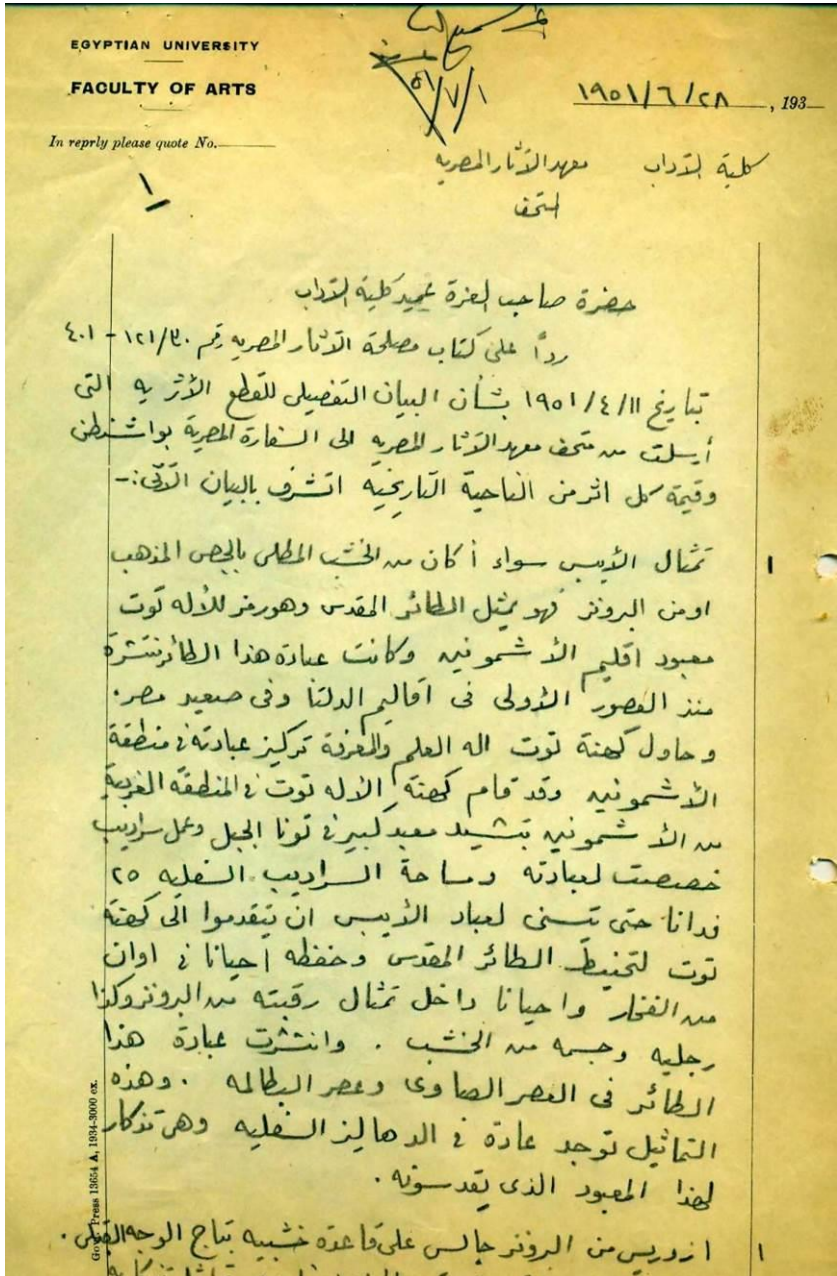 EGYPTIAN UNIVERSITY
FACULTY OF ARTS
In reprly please quote No.
٥١/٧/١
١٩٥١/٦/٢٨ , 193
كلية الآداب معهد الآثار المصرية
المتحف
١
حضرة صاحب العزة عميد كلية الآداب
رداً على كتاب مصلحة الآثار المصرية رقم ١٢١/٣٠ - ٤٠١
بتاريخ ١٩٥١/٤/١١ بشأن البيان التفصيلى للقطع الأثريه التى
أرسلت من متحف معهد الآثار المصريه الى السفارة المصرية بواشنطن
وقيمة كل اثر من الناحية التاريخيه اتشرف بالبيان الآتى :-
١ تمثال الأيبس سواء أكان من الخشب المطلى بالجص المذهب
او من البرونز فهو يمثل الطائر المقدس وهو رمز للأله توت
معبود اقليم الأشمونين وكانت عبادة هذا الطائر منتشرة
منذ العصور الأولى فى اقاليم الدلتا وفى صعيد مصر .
وحاول كهنة توت اله العلم والمعرفة تركيز عبادته فى منطقة
الأشمونين وقد قام كهنة الأله توت فى المنطقة الغربية
من الأشمونين بتشييد معبد كبير فى تونا الجبل وعمل سراديب
خصصت لعبادته ومساحة السراديب السفليه ٢٥
فدانا حتى تسنى لعباد الأيبس ان يتقدموا الى كهنة
توت لتحنيط الطائر المقدس وحفظه أحيانا فى اوان
من الفخار واحيانا داخل تمثال رقبته من البرونز وكذا
رجليه وجسمه من الخشب . وانتشرت عبادة هذا
الطائر فى العصر الصاوى وعصر البطالمه . وهذه
التماثيل توجد عادة فى الدهاليز السفليه وهى تذكار
لهذا المعبود الذى يقدسونه .
١ ازوريس من البرونز جالس على قاعدة خشبيه بتاج الوجه القبلى .
Press 13654 A, 1934-3000 ex.